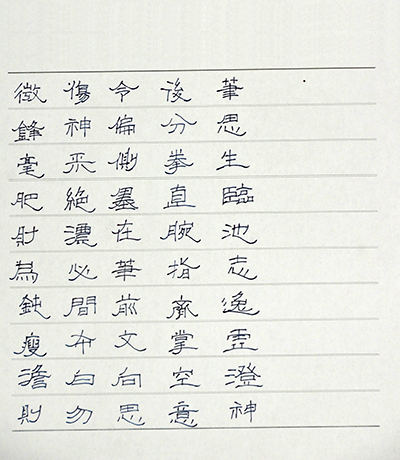 筆思生臨池志逸霊澄神
後分拳直腕指齊掌空意
令偏側墨在筆前文向思
傷神采絕濃必間布白勿
徵鋒毫肥財為鈍瘦澹則